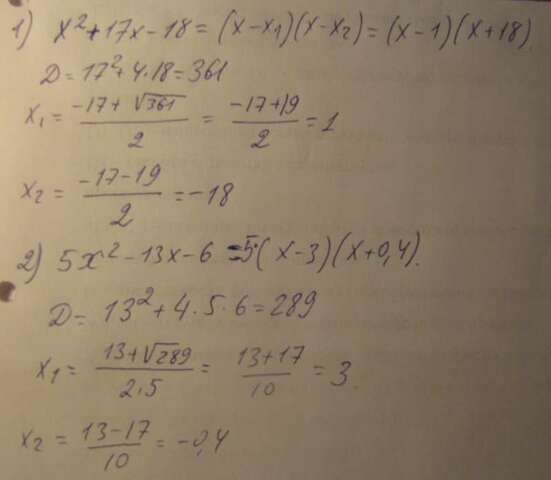 1) x² + 17x - 18 = (x - x₁)(x - x₂) = (x - 1)(x + 18)
D = 17² + 4·18 = 361
x₁ = (-17 + √361)/2 = (-17 + 19)/2 = 1
x₂ = (-17 - 19)/2 = -18
2) 5x² - 13x - 6 = 5·(x - 3)(x + 0,4).
D = 13² + 4·5·6 = 289
x₁ = (13 + √289)/(2·5) = (13 + 17)/10 = 3
x₂ = (13 - 17)/10 = -0,4